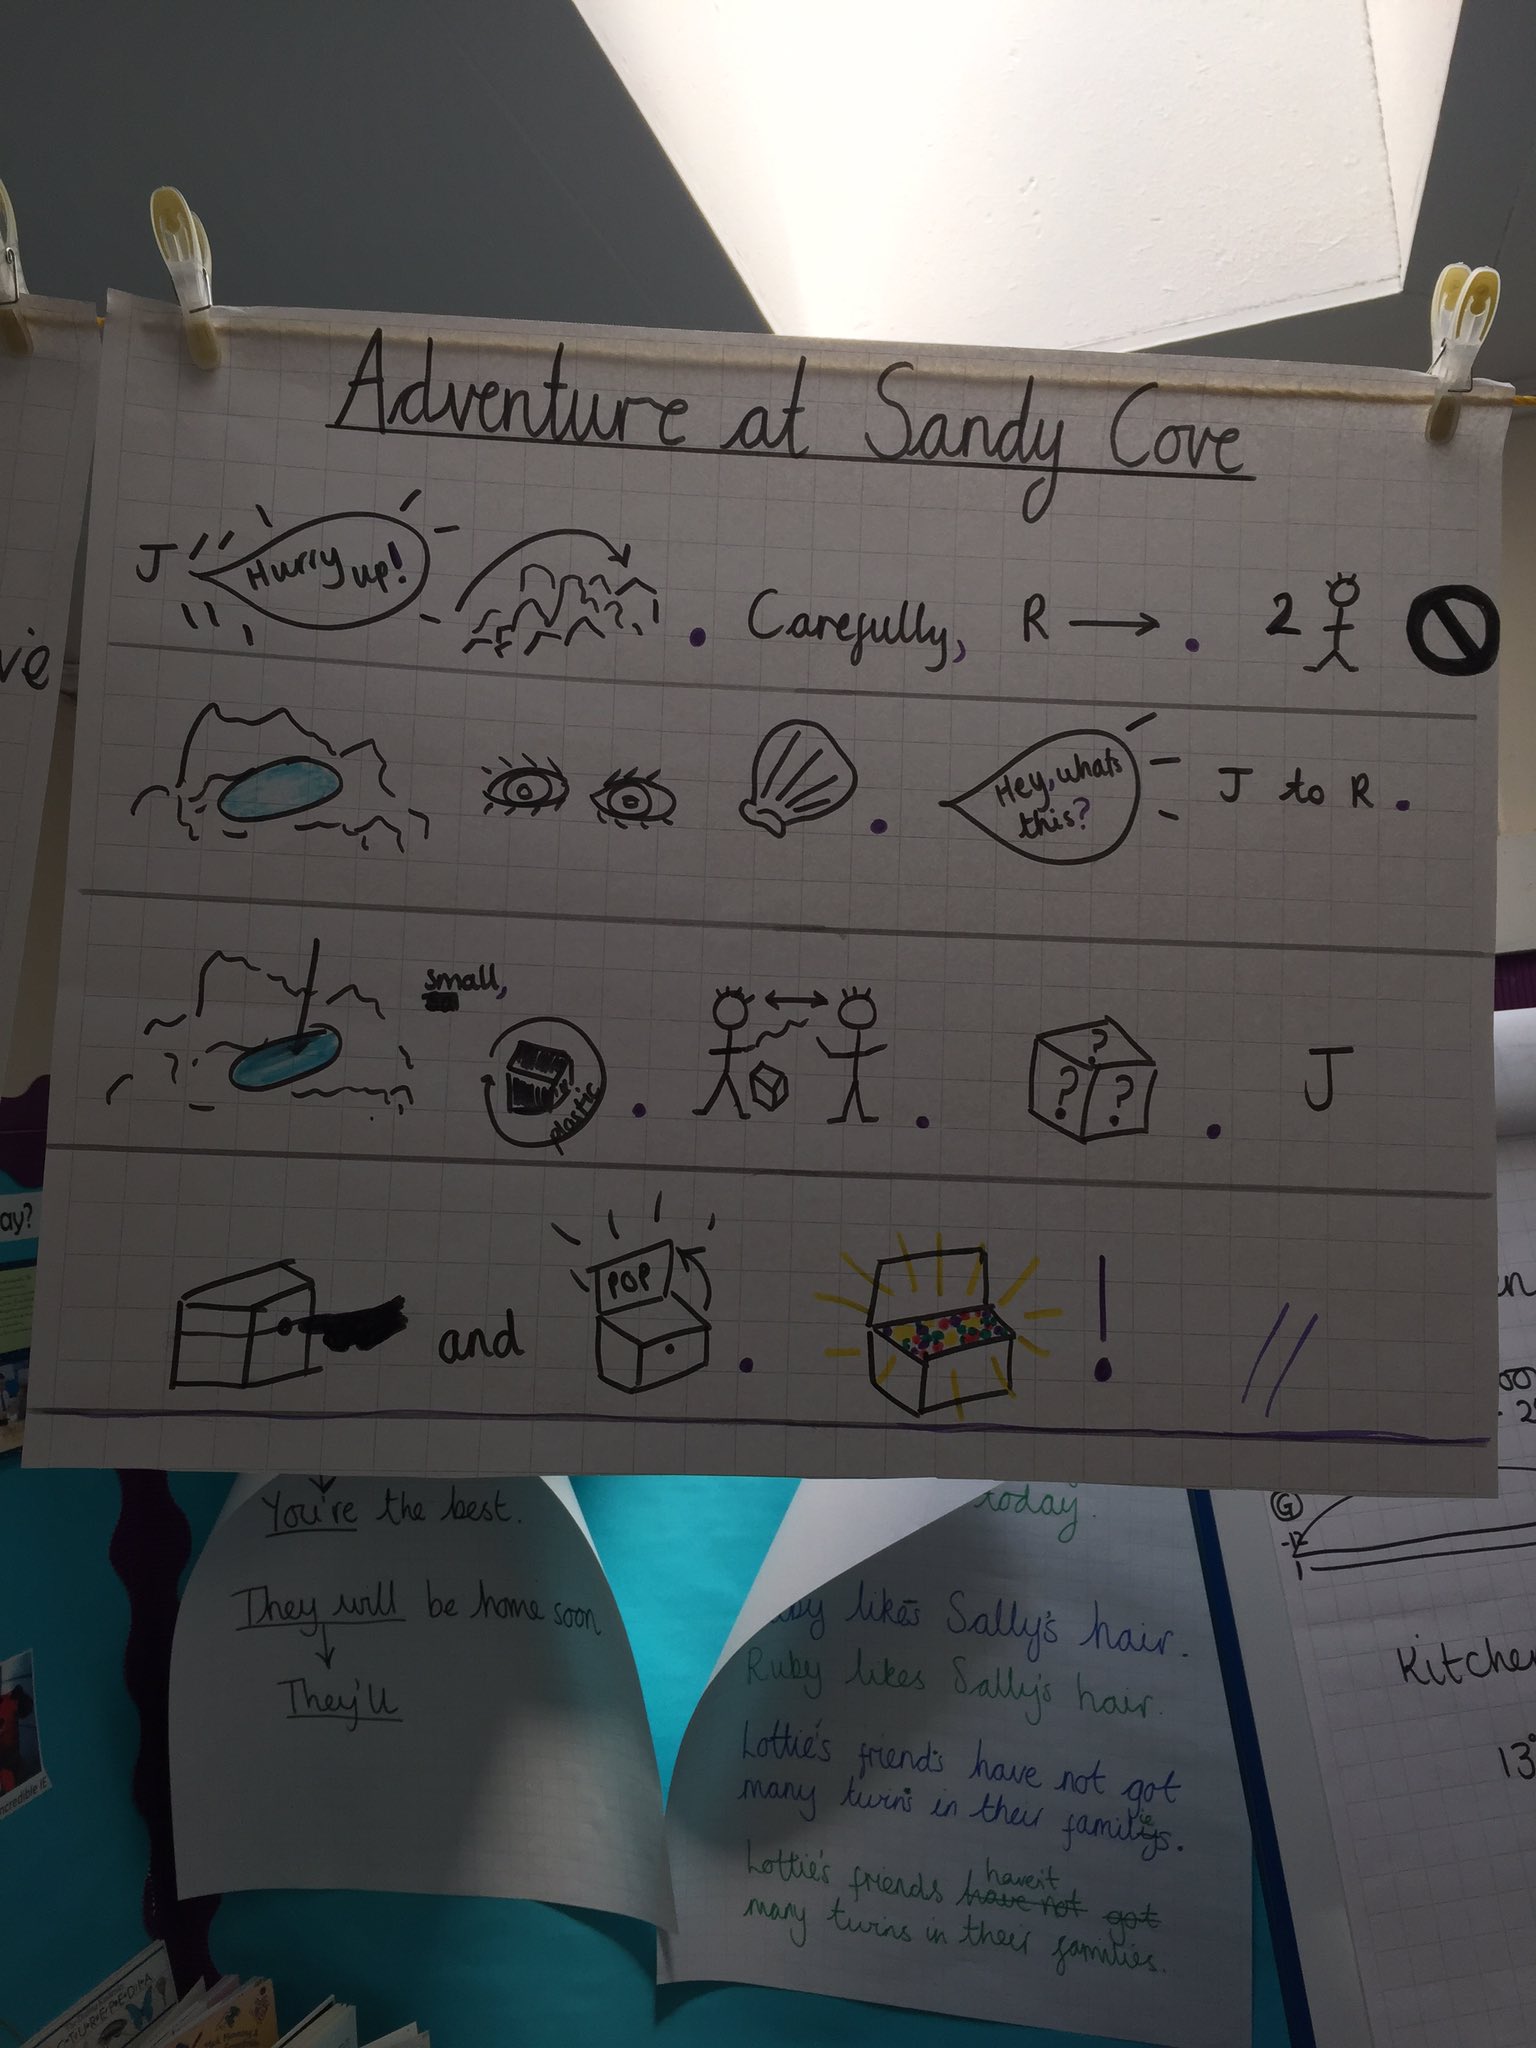 Adventure at Sandy Cove
J Hurry up! . Carefully, R → . 2
Hey, whats this? J to R .
small,
plastic . . ? ? ? . J
and POP . ! //
ay?
You're the best.
They will be home soon
They'll
today.
likes Sally's hair.
Ruby likes Sally's hair.
Lottie's friends have not got
many turns in their familys.
ie
haven't
Lottie's friends have not got
many turns in their families.
G
Kitchen
13°